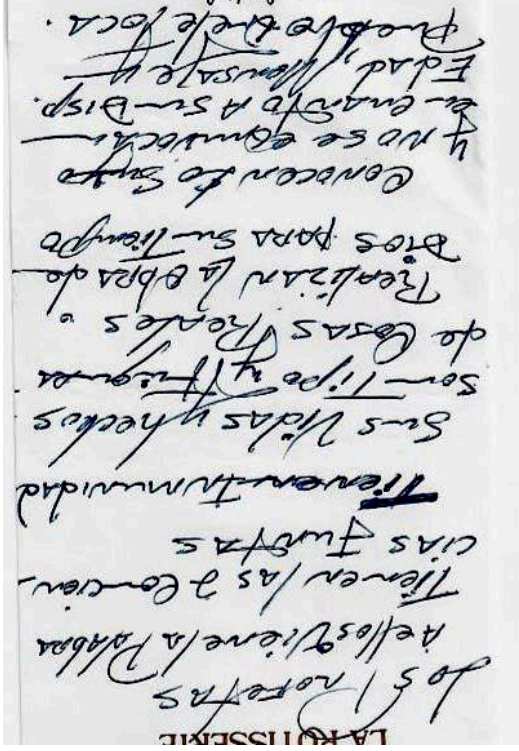 LA ROTISSERIE
Los Profetas
A ellos Viene la Palabra
Tienen las 2 Concien-
cias Juntas
Tienen Inmunidad
Sus Vidas y hechos
Son Tipo y Figura
de Cosas Reales.
Realizan la Obra de
Dios para Su Tiempo
Conocen Lo Suyo
y No se equivocan
en cuanto A Su Disp.
Edad, Mensaje y
Pueblo que le Toca.